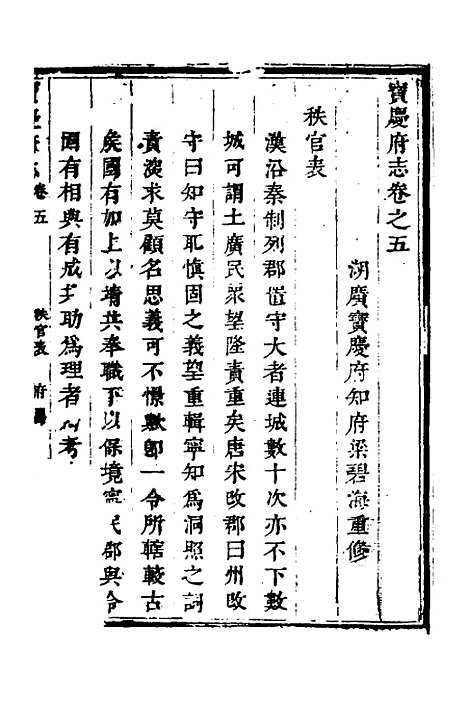 寶慶府志卷之五
湖廣寶慶府知府梁碧海重修
秩官表
漢沿秦制列郡置守大者連城數十次亦不下數
城可謂土廣民衆望隆責重矣唐宋改郡曰州改
守曰知守取慎固之義望重輯寧知爲洞照之詞
責深求莫顧名思義可不憬歟卽一令所轄較古
矦國有加上以靖共奉職下以保境寧民郡與令
固有相與有成 助爲理者 考
卷五
秩官表
府